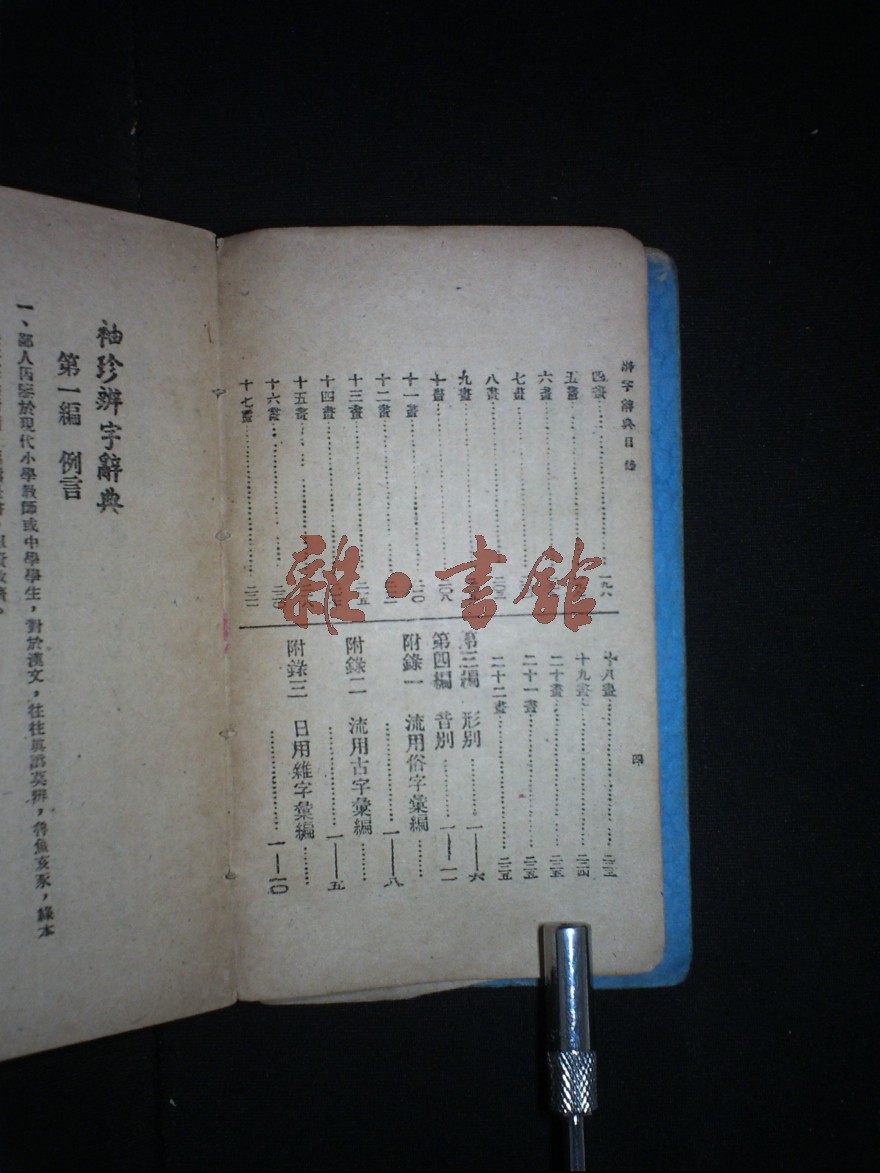 辨字辭典目錄
四畫……一九八
五畫……
六畫……
七畫……
八畫……
九畫……
十畫……二〇八
十一畫……二一〇
十二畫……
十三畫……二一五
十四畫……
十五畫……
十六畫……
十七畫……
十八畫……
十九畫……二三四
二十畫……二三五
二十一畫……二三五
二十二畫……二三五
第三編 形別……一—六
第四編 音別……一—一一
附錄一 流用俗字彙編……一—八
附錄二 流用古字彙編……一—五
附錄三 日用雜字彙編……一—一〇
四
袖珍辨字辭典
第一編 例言
一、鄙人因鑒於現代小學教師或中學學生，對於漢文，往往異譌莫辨，魯魚亥豕，緣本
雜·書館